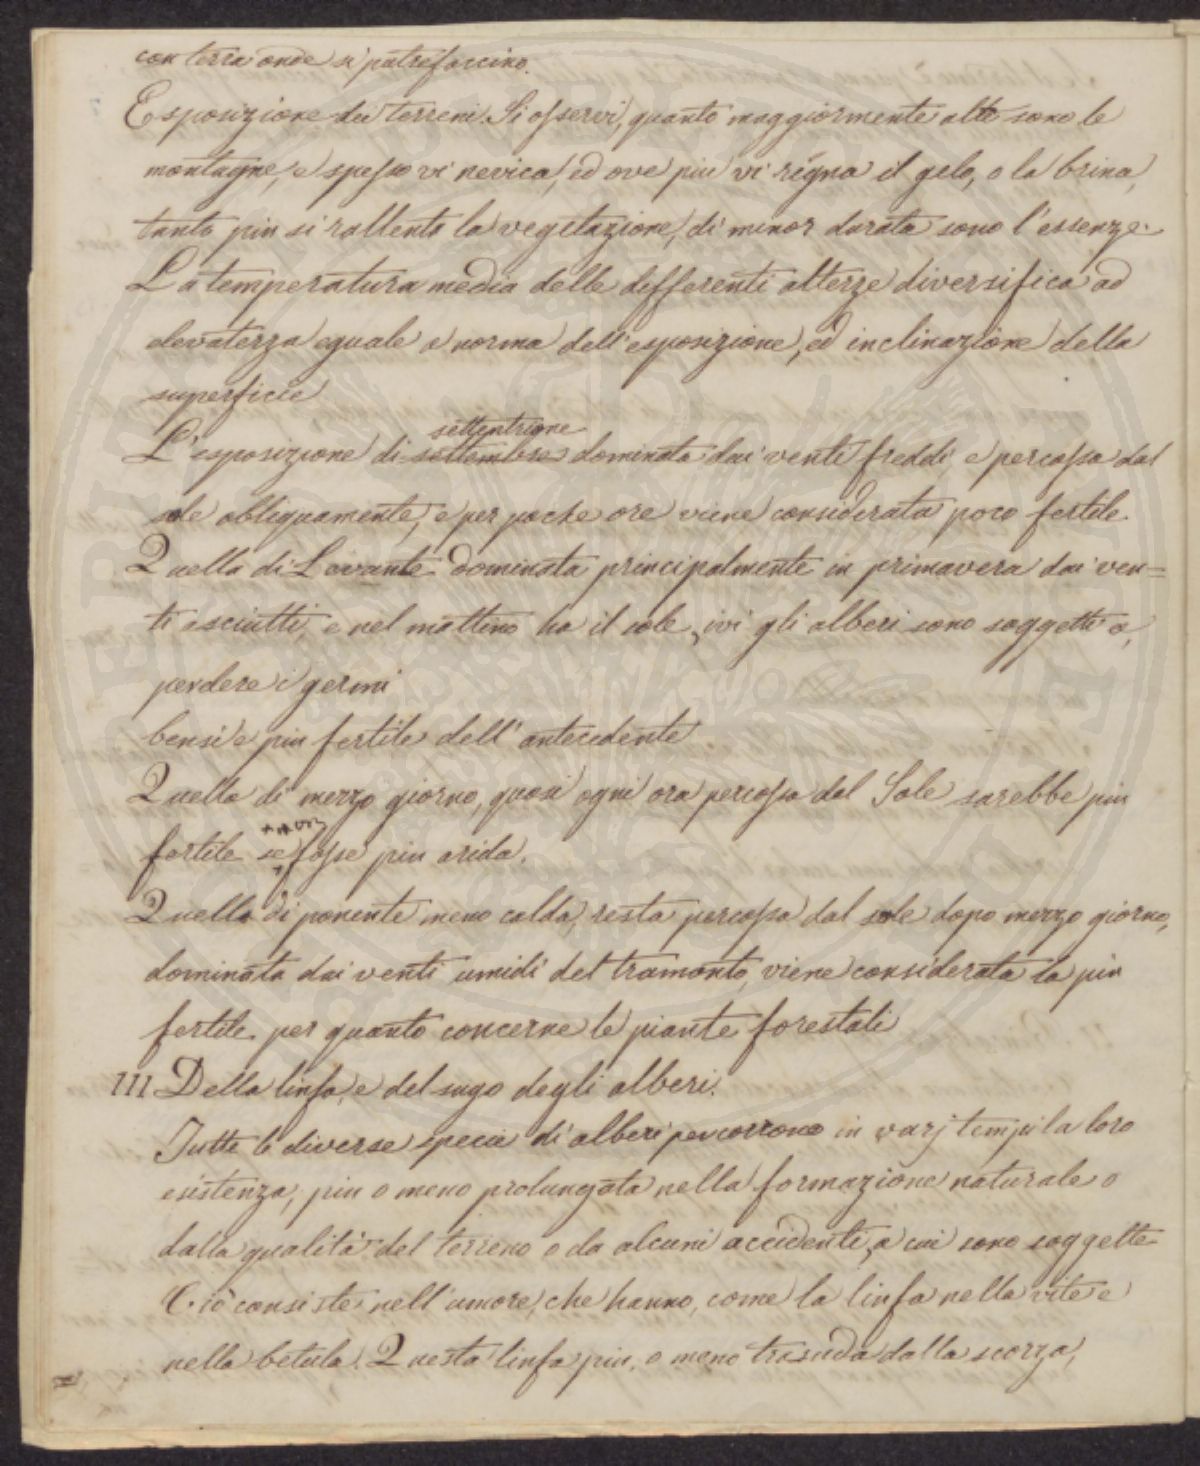 con terra onde si putrefaccino.
Esposizione dei terreni. Si osservi, quanto maggiormente alte sono le
montagne, e spesso vi nevica, ed ove piu vi régna il gelo, o la brina,
tanto piu si rallenta la vegetazione, di minor durata sono l'essenze.
La temperatura media delle differenti altezze diversifica ad
elevatezza eguale a norma dell'esposizione, ed inclinazione della
superficie
settentrione
L'esposizione di settembre dominata dai venti freddi e percossa dal
sole obliquamente, e per poche ore viene considerata poco fertile.
Quella di Levante dominata principalmente in primavera dai ven=
ti asciutti, e nel mattino ha il sole, ivi gli alberi sono soggetti a,
perdere i germi
bensi e piu fertile dell'antecedente
Quella di mezzo giorno, quasi ogni ora percossa dal Sole sarebbe piu
non
fertile se fosse piu arida.
Quella di ponente meno calda, resta percossa dal sole dopo mezzo giorno,
dominata dai venti umidi del tramonto, viene considerata la piu
fertile per quanto concerne le piante forestali
III Della linfa, e del sugo degli alberi.
Tutte le diverse specie di alberi percorrono in varj tempi la loro
esistenza, piu o meno prolungata nella formazione naturale o
dalla qualità del terreno o da alcuni accidenti, a cui sono soggette
Ciò consiste nell'umore, che hanno, come la linfa nella vite e
nella betula. Questa linfa piu, o meno trasuda dalla scorza,